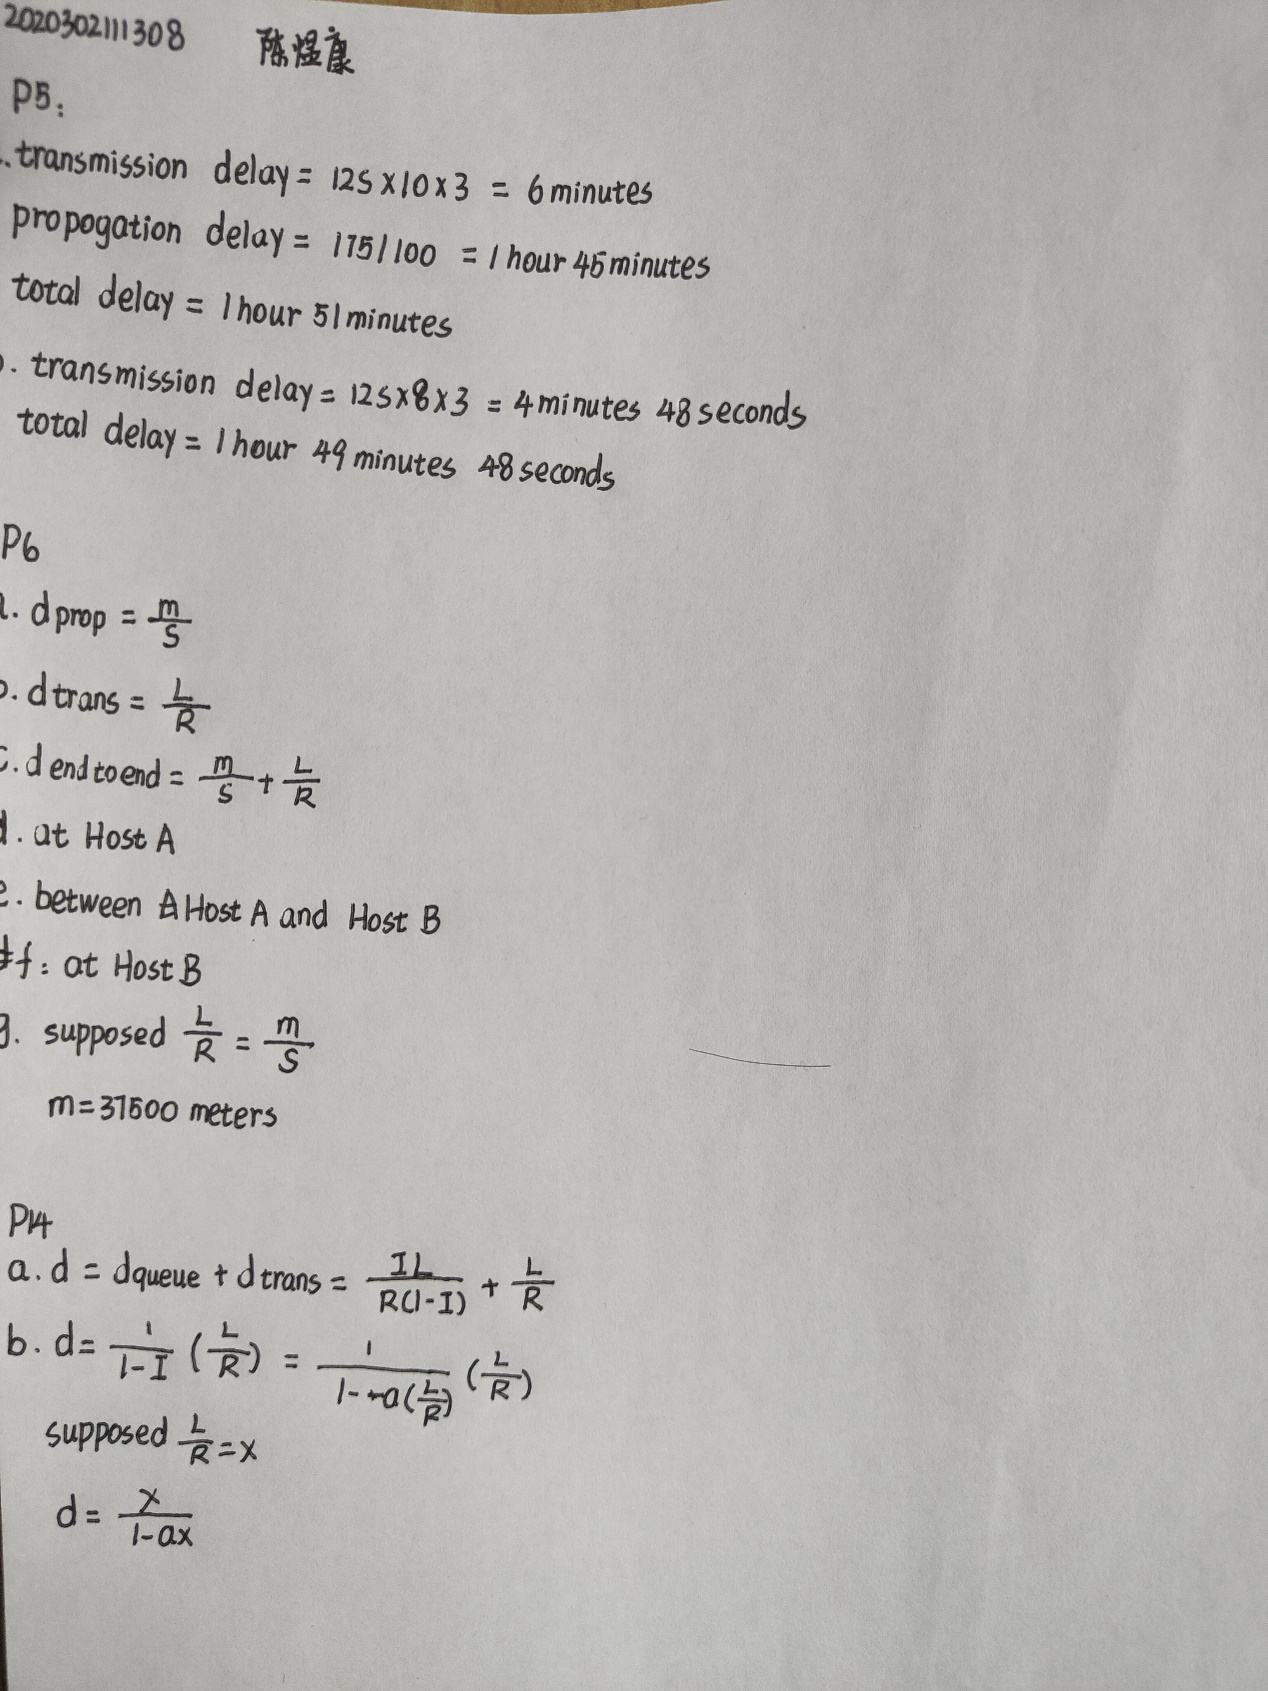 2020302111308 陈煜康
P5:
.transmission delay = 12s×10×3 = 6minutes
propogation delay = 175/100 = 1hour 45minutes
total delay = 1hour 51minutes
b. transmission delay = 12s×8×3 = 4minutes 48seconds
total delay = 1hour 49minutes 48seconds
P6
a. dprop = m/s
b. dtrans = L/R
c. dendtoend = m/s + L/R
d. at Host A
e. between Host A and Host B
f: at Host B
g. supposed L/R = m/s
m=37500 meters
P14
a. d = dqueue + dtrans = IL/R(1-I) + L/R
b. d = 1/1-I (L/R) = 1/1-a(L/R) (L/R)
supposed L/R = x
d = x/1-ax